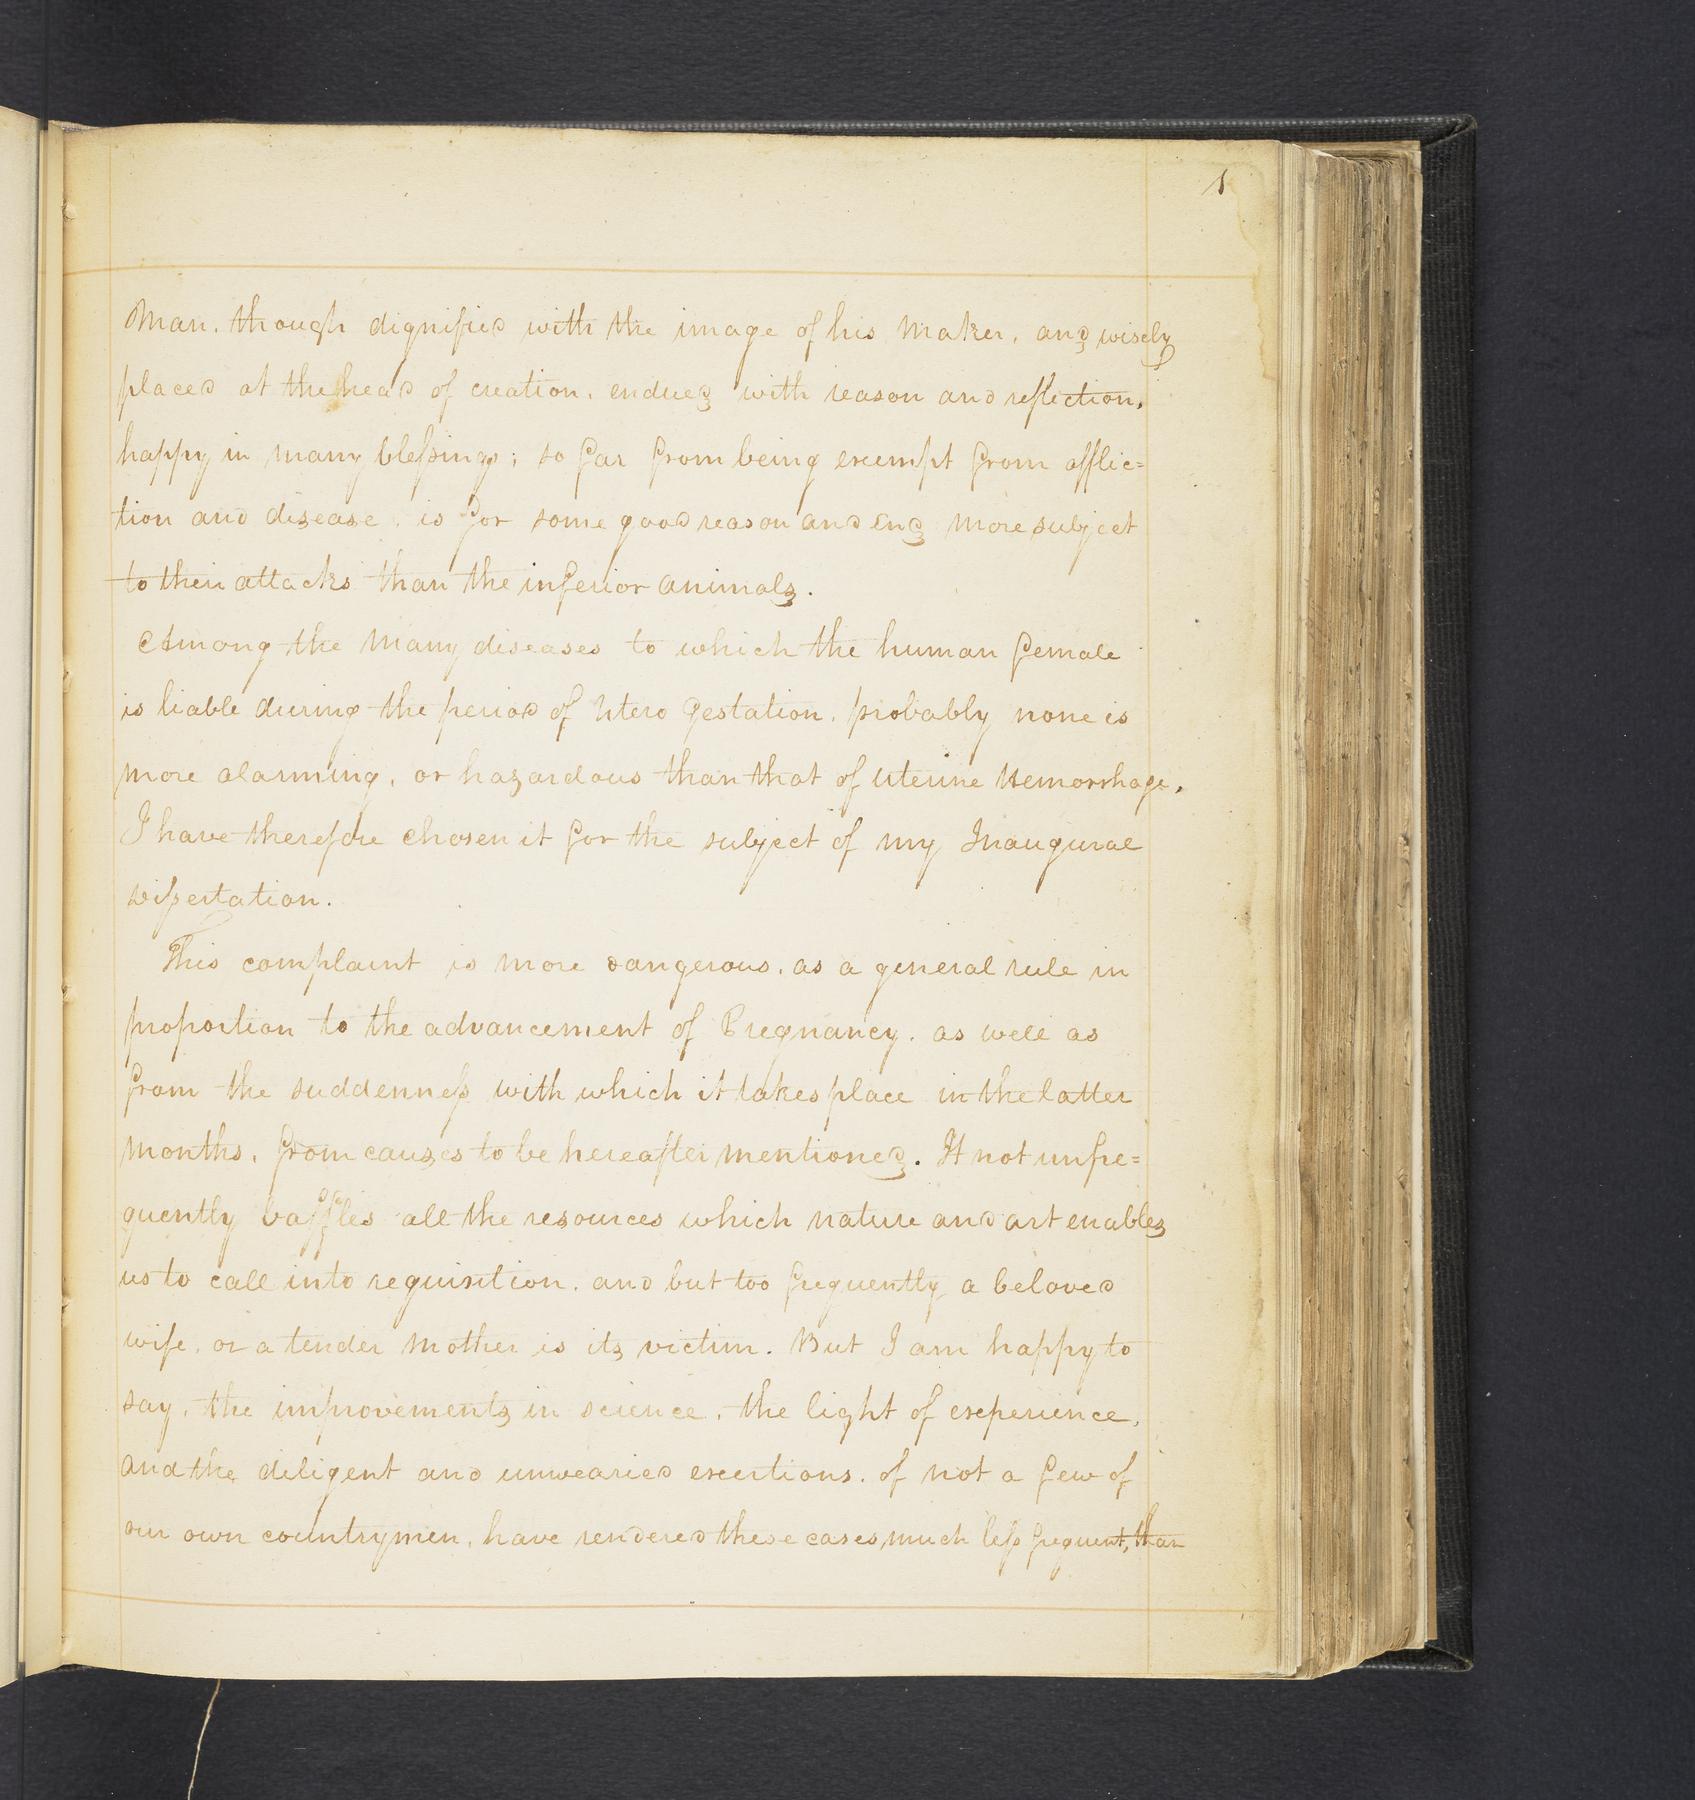 1
Man, though dignified with the image of his Maker, and wisely
placed at the head of creation, endued with reason and reflection,
happy in many blessings; so far from being exempt from afflic=
tion and disease, is for some good reason and End more subject
to their attacks than the inferior animals.
Among the Many diseases to which the human female
is liable during the period of Utero Gestation, probably none is
more alarming, or hazardous than that of Uterine Hemorrhage,
I have therefore chosen it for the subject of my Inaugural
dissertation.
This complaint is more dangerous, as a general rule in
proportion to the advancement of Pregnancy, as well as
from the suddenness with which it takes place in the latter
months, from causes to be hereafter mentioned. It not unfre=
quently baffles all the resources which nature and art enables
us to call into requisition, and but too frequently a beloved
wife, or a tender mother is its victim. But I am happy to
say, the improvements in science, the light of experience,
and the diligent and unwearied exertions, of not a few of
our own countrymen, have rendered these cases much less frequent, than